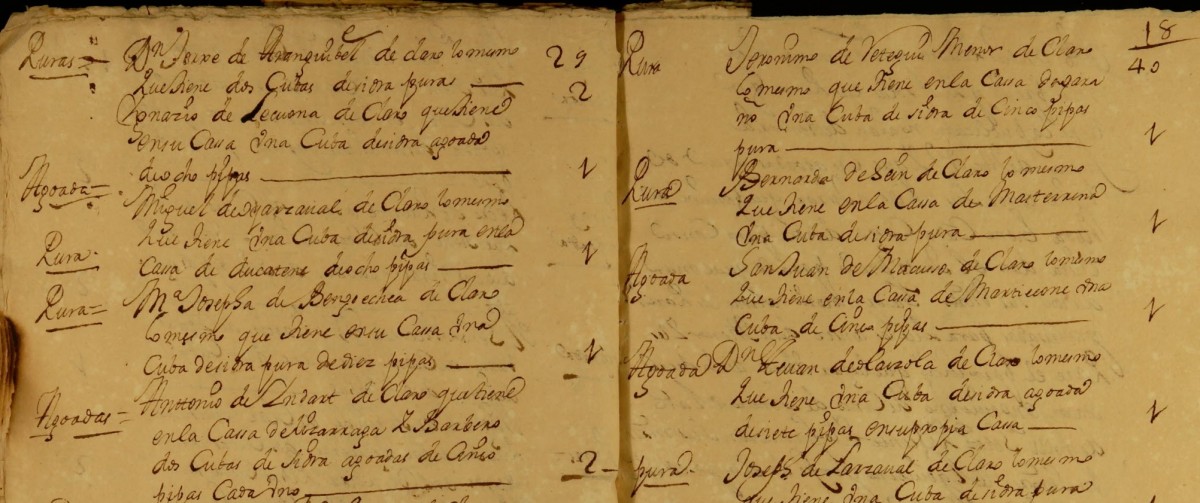 Puras= Dn Felipe de Aranguibel de claro lo mismo 29
Que tiene dos Cubas de sidra puras — 2
Ygnazio de Lecuona de Claro que tiene
en su Cassa Vna Cuba de sidra agoada
Agoada= de ocho pipas — 1
Miguel de Yarzaual de Claro lo mesmo
Que tiene Vna Cuba de sidra pura en la
Pura. Cassa de ducatene de ocho pipas — 1
Pura= Ma Josepha de Bengoechea de Claro
lo mesmo que tiene en su Cassa Vna
Cuba de sidra pura de diez pipas — 1
Agoadas= Anttonio de Yndart de Claro que tiene
en la Cassa de Lizarraga Z Barbero
dos Cubas de sidra agoadas de Cinco
pipas Cada Vno — 2
18
Pura Jeronimo de Veteguj Menor de Claro 40
lo mesmo que tiene en la Cassa de
no Vna Cuba de sidra de Cinco pipas
pura — 1
Pura Bernarda de Sein de Claro lo mesmo
Que tiene en la Cassa de Masterrena
Vna Cuba de sidra pura — 1
Agoada San Juan de Macusso de Claro lo mesmo
Que tiene en la Cassa de Martticone Vna
Cuba de Cinco pipas — 1
Agoada Dn Juan de Olaizola de Claro lo mesmo
Que tiene Vna Cuba de sidra agoada
de siete pipas en su propia Cassa — 1
pura. Joseph de Larzaual de Claro lo mesmo
que tiene Vna Cuba de sidra pura